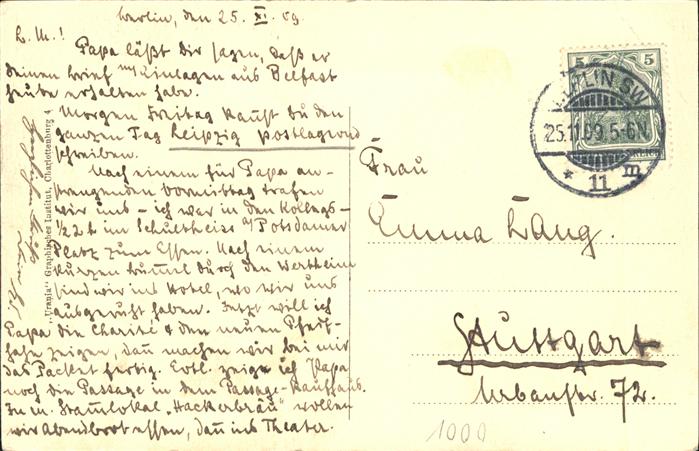 Berlin, den 25. XI. 09.
L. M.!
Papa läßt Dir sagen, daß er
Deinen Brief mit Einlagen aus Belfast
heute erhalten habe.
Morgen Freitag kannst du den
ganzen Tag Leipzig postlagernd
schreiben.
Nach einem für Papa an-
strengenden Vormittag trafen
wir uns – ich war in den Kollegs –
1/2 2 h im Schultheiss a/ Potsdamer
Platz zum Essen. Nach einem
kurzen Bummel durch den Wertheim
sind wir ins Hotel, wo wir uns
ausgeruht haben. Jetzt will ich
Papa die Charité & den neuen
zeigen, dann machen wir bei mir
das Packet fertig. Evtl. zeige ich Papa
noch die Passage in dem Passage-Kaufhaus.
In m. Stammlokal „Hackerbräu" wollen
wir Abendbrot essen, dann ins Theater.
„Urania" Graphisches Institut, Charlottenburg 4
5 5
BERLIN SW
25.11.09.5-6N.
* 11 m
Frau
Emma Lang.
Stuttgart
Urbanstr. 72.
1000